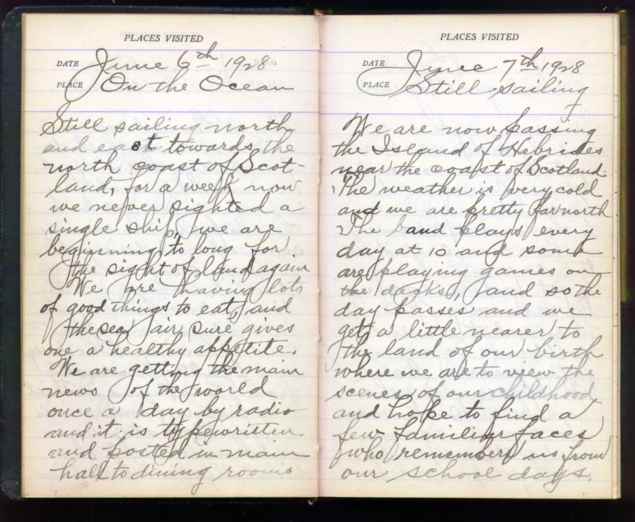 PLACES VISITED
DATE June 6th 1928
PLACE On the Ocean
Still sailing north
and east towards the
north coast of Scot-
land, for a week now
we never sighted a
single ship, we are
beginning to long for
the sight of land again
We are having lots
of good things to eat, and
the sea air sure gives
one a healthy appetite.
We are getting the main
news of the world
once a day by radio
and it is typewristen
and posted in main
hall to dining rooms
PLACES VISITED
DATE June 7th 1928
PLACE Still sailing
We are now passing
the Island of Hebrides
near the coast of Scotland.
The weather is very cold
and we are pretty far north
The band plays every
day at 10 and some
are playing games on
the decks, and so the
day passes and we
get a little nearer to
the land of our birth
where we are to view the
scenes of our childhood
and hope to find a
few familiar faces
who remember us from
our school days.